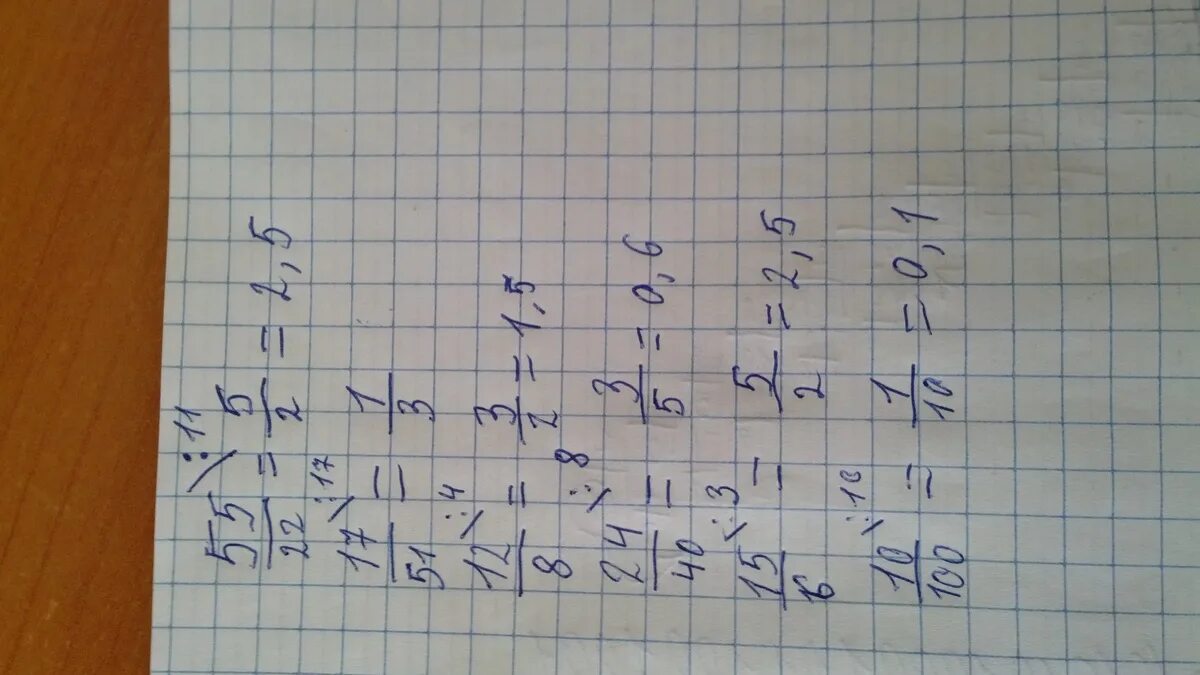 55/22 :11 = 5/2 = 2,5
17/51 :17 = 1/3
12/8 :4 = 3/2 = 1,5
24/40 :8 = 3/5 = 0,6
15/6 :3 = 5/2 = 2,5
10/100 :10 = 1/10 = 0,1